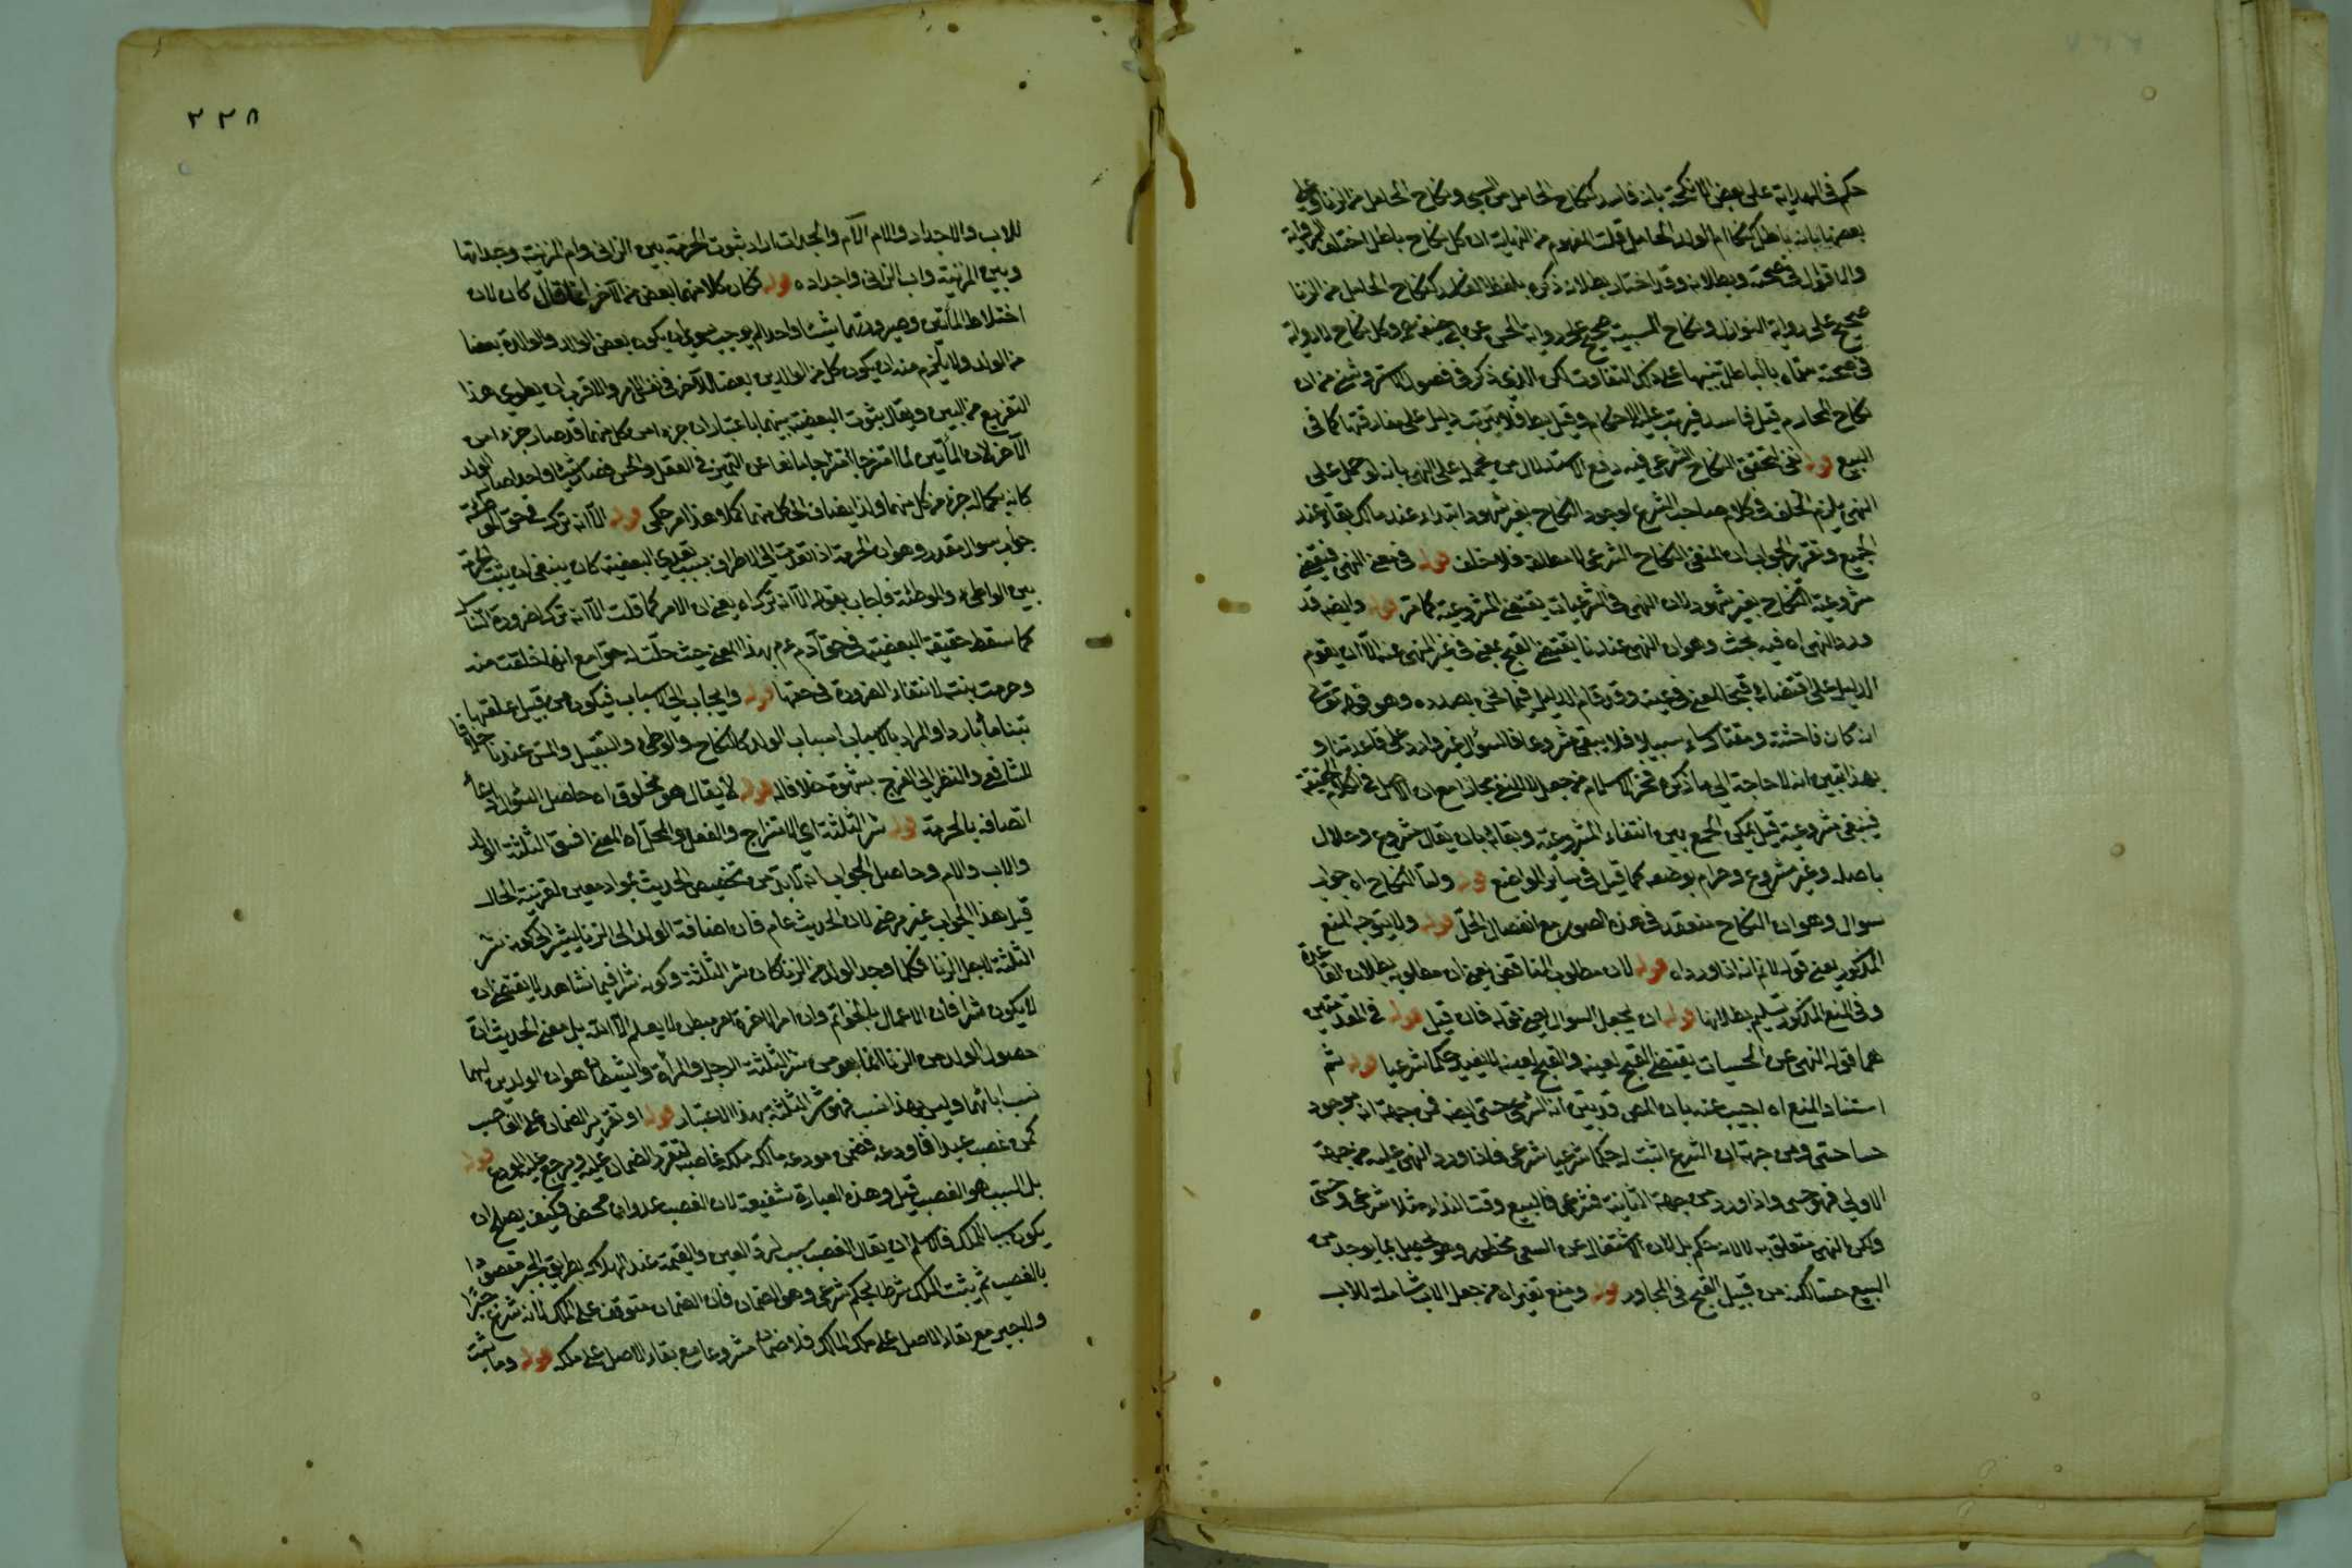 حكم في الهداية على بعض الانكحة بانه فاسد كنكاح الحامل من السبي ونكاح الحامل من الزنا وعلى
بعضها بانه باطل كنكاح ام الولد الحامل قلت المفهوم من النهاية ان كل نكاح باطل اختلف الرواية
والاقوال في صحته وبطلانه وقد اختار بطلانه ذكره بلفظ الفاسد كنكاح الحامل من الزنا
صحيح على رواية النوازل ونكاح المسبية صحيح على رواية الحسن عن ابي حنيفة وكل نكاح لا رواية
في صحته سماه بالباطل تنبيها على ذلك التفاوت لكن الذي ذكر في فصول الاستروشني من ان
نكاح المحارم قيل فاسد فيترتب عليه الاحكام وقيل باطل فلا يترتب دليل على مفارقتهما كما في
البيع قوله نفي لتحقق النكاح الشرعي فيه دفع الاستدلال من يحمله على النهي بانه لو حمل على
النهي يلزم الخلف في كلام صاحب الشرع لوجود النكاح بغير شهود ابتداء عند مالك بقاء عند
الجميع وتقرير الجواب ان المنفي النكاح الشرعي لا مطلقا فلا خلف قوله في معنى النهي فيقتضي
مشروعية النكاح بغير شهود لان النهي في الشرعيات يقتضي المشروعية كما مر قوله وايضا قد
ورد النهي اه فيه بحث وهو ان النهي عندنا يقتضي القبح لمعنى في غير المنهي عنه الا ان يقوم
الدليل على اقتضائه قبحا لمعنى في عينه وقد قام الدليل فيما نحن بصدده وهو قوله تعالى
انه كان فاحشة ومقتا وساء سبيلا فلا يبقى مشروعا فالسؤال غير وارد على قاعدتنا و
بهذا تبين انه لا حاجة الى ما ذكره فخر الاسلام من جعل للنفي مجازا مع ان الاصل في الكلام الحقيقة
فينبغي مشروعية قيل يمكن الجمع بين انتفاء المشروعية وبقائه بان يقال مشروع وحلال
باصله وغير مشروع وحرام بوصفه كما قيل في سائر المواضع قوله ولنا النكاح اه جواب
سوال وهو ان النكاح منعقد في هذه الصور مع انفصال الحل قوله ولا يتوجه المنع
المذكور يعني قوله لا نم انه اذا ورد اه قوله لان مطلوب المناقض يعني ان مطلوبه بطلان القاعدة
وفي المنع المذكور تسليم بطلانها قوله ان يجعل السوال يعني قوله فان قيل قوله في المقدمتين
هما قوله النهي عن الحسيات يقتضي القبح لعينه والقبح لعينه لا يفيد حكما شرعيا قوله ثم
استناد المنع اه اجيب عنه بان المص قد بين ان الشرعي حسي ايضا فمن جهة انه موجود
حسا حسي ومن جهة ان الشرع اثبت له حكما شرعيا شرعي فاذا ورد النهي عليه من جهة
الاولى فهو حسي واذا ورد من جهة الثانية فشرعي فالبيع وقت النداء مثلا شرعي وحسي
ولكن النهي متعلق به لا لانه حكم بل لان الاشتغال عن السعي محظور وهو يحصل بما يوجد من
البيع حسا لكنه من قبيل القبح في المجاور قوله ومنع تغيير اه من جعل الاب شاملة للاب
٢٢٨
للاب والاجداد والام الام والجدات اراد ثبوت الحرمة بين الزاني وام المزنية وجداتها
وبين المزنية واب الزاني واجداده قوله فكان كلا منهما بعض من الآخر انما قال كان لان
اختلاط المائين وصيرورتهما شيئا واحدا لم يوجب سوى ان يكون بعض الوالد والوالدة بعضا
من الولد ولا يلزم منه ان يكون كل من الوالدين بعضا للآخر في نفس الامر والاقرب ان يطوى هذا
التفريع من البين ويقال بثبوت البعضية بينهما باعتبار ان جزء من كل منهما قد صار جزء من
الآخر لان المائين لما امتزجا امتزاجا مانعا عن التميز في العقل والحس فصارا شيئا واحدا صار الولد
كانه بكماله جزء من كل منهما ولذا يضاف الى كل منهما كملا وهذا امر حكمي قوله الا انه ترك في حق الموطئة
جواب سوال مقدر وهو ان الحرمة اذا تعدت الى الاطراف بسبب تعدي البعضية كان ينبغي ان يثبت الحرمة
بين الواطئ والموطئة فاجاب بقوله الا انه ترك اه يعني ان الامر كما قلت الا انه ترك ضرورة التناسل
كما سقط حقيقة البعضية في حق آدم عم بهذا المعنى حيث حلت له حواء مع انها خلقت منه
وحرمت بنته لانتفاء الضرورة في حقها قوله وايجاب الى الاسباب فيكون من قبيل علفتها
تبنا وماء باردا والمراد بالاسباب اسباب الولد كالنكاح والوطئ والتقبيل والمس عندنا خلافا
للشافعي والنظر الى الفرج بشهوة خلافا له قوله لا يقال هو مخلوق اه حاصل السؤال
اتصافه بالحرمة قوله شر الثلثة اي الامتزاج والفعل والمحل اه المعنى افسق الثلثة الولد
والاب والام وحاصل الجواب انه لا بد من تخصيص الحديث بمواد معين لقرينة الحال
قيل هذا الجواب غير مرضي لان الحديث عام فان اضافة الولد الى الزنا يشير الى كونه شر
الثلثة لاجل الزنا فكلما وجد الولد من الزنا كان شر الثلثة وكونه شرا فيما نشاهد لا يقتضي ان
لا يكون شرا فان الاعمال بالخواتم وان امر الاخرة امر مبطن لا يعلم الا الله بل معنى الحديث ان
حصول الولد من الزنا انما هو من شر الثلثة الرجل والمرأة والشيطان هو ان الولدين لهما
نسب اباتهما وليس لهذا نسب فهو شر الثلثة بهذا الاعتبار قوله او تقرير الضمان على الغاصب
كمن غصب عبدا فاودعه فضمن مودعه مالكه ملكه غاصبه لتقرر الضمان عليه ويرجع عليه المودع قوله
بل السبب هو الغصب قيل وهذه العبارة شفيعة لان الغصب عدوان محض فكيف يصلح ان
يكون سببا للملك فالاسلم ان يقال الغصب سبب لرد العين والقيمة عند الهلاك بطريق الجبر مقصودا
بالغصب ثم يثبت الملك شرطا لحكم شرعي وهو الضمان فان الضمان متوقف على الملك لانه شرع جبرا
ولا جبر مع بقاء الاصل على ملك المالك فلا ضمان مشروعا مع بقاء الاصل على ملكه قوله وما ثبت